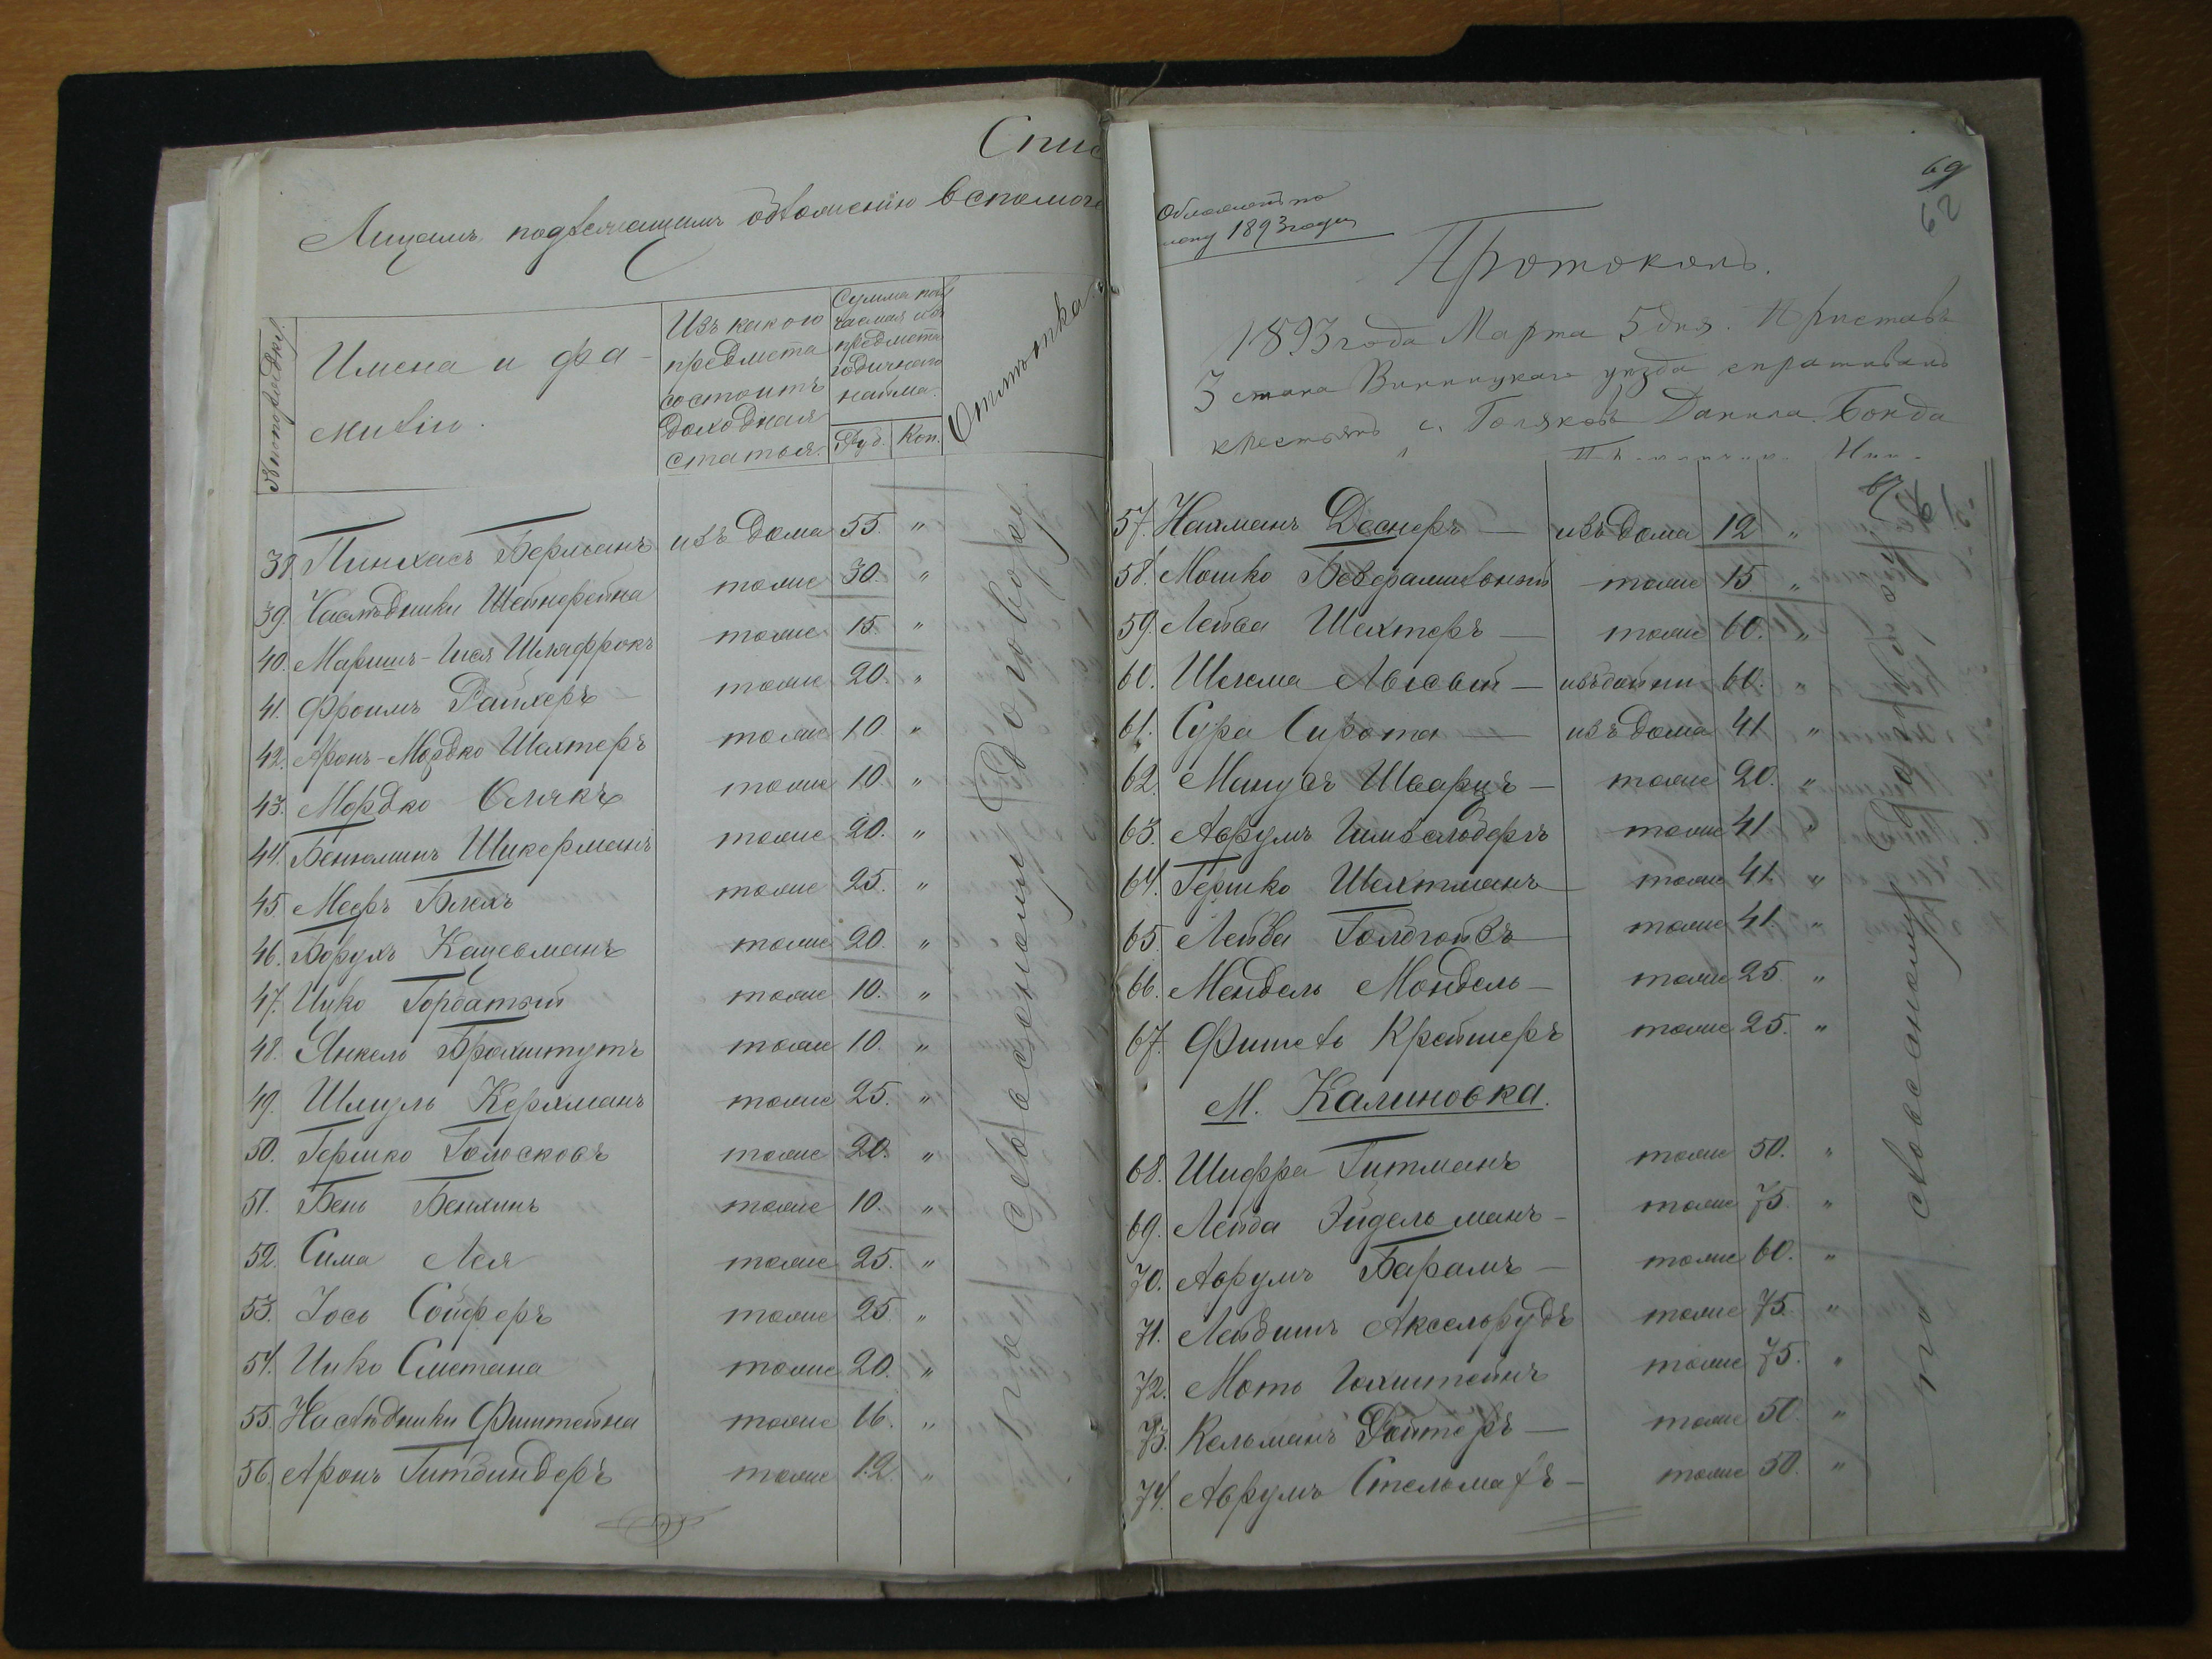 Спис
Лицамъ подлежащимъ обложенію вспомога
№ по порядку.
Имена и фа-
миліи.
Изъ какого
предмета
состоитъ
доходная
статья.
Сумма полу
чаемая изъ
предмета
годичного
найма.
Руб. Коп.
Отмѣтка о
38. Пинхасъ Берманъ изъ дома 55. "
39. Наслѣдники Шейнфейна тоже 30. "
40. Маріямъ-Ися Шляффрокъ тоже 15. "
41. Фроимъ Райхеръ тоже 20. "
42. Аронъ-Мордко Шехтеръ тоже 10. "
43. Мордко Слякъ тоже 10. "
44. Бенюминъ Шикерманъ тоже 20. "
45. Мееръ Бляхъ тоже 25. "
46. Борухъ Кацевманъ тоже 20. "
47. Ицко Горбатый тоже 10. "
48. Янкель Брохштутъ тоже 10. "
49. Шмуль Керхманъ тоже 25. "
50. Гершко Голосковъ тоже 20. "
51. Бень Бенлинъ тоже 10. "
52. Сима Лея тоже 25. "
53. Іось Сойферъ тоже 25 "
54. Ицко Сметана тоже 20. "
55. Наслѣдники Финштейна тоже 16. "
56. Аронъ Гитбиндеръ тоже 12. "
словесному договору
69
62
1893 года
Протоколъ.
1893 года Марта 5 дня. Приставъ
3 стана Винницкаго уѣзда спрашивалъ
крестьянъ с. Голяковъ Данила Бонда
67
57. Нахманъ Деснеръ — изъ дома 12 "
58. Мошко тоже 15. "
59. Лейба Шехтеръ — тоже 60. "
60. Шлема Лысый — изъ бойни 60. "
61. Сура Сирота — изъ дома 41 "
62. Манусъ Шварцъ — тоже 20. "
63. Аврумъ Гимзельбергъ тоже 41 "
64. Гершко Шехтманъ тоже 41. "
65. Лейба Голдгойзъ тоже 41. "
66. Мендель Мондель — тоже 25. "
67. Фишель Крайшеръ тоже 25. "
М. Калиновка.
68. Шифра Гитманъ тоже 50. "
69. Лейба Эйдельманъ — тоже 75. "
70. Аврумъ Барамъ — тоже 60. "
71. Лейбишъ Аксельрудъ тоже 75. "
72. Моть Гохштейнъ тоже 75. "
73. Кельманъ Ройтеръ — тоже 50. "
74. Аврумъ Стельмахъ — тоже 50. "
по словесному договору